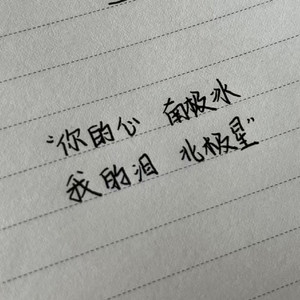 “你的心 南极冰
我的泪 北极星”